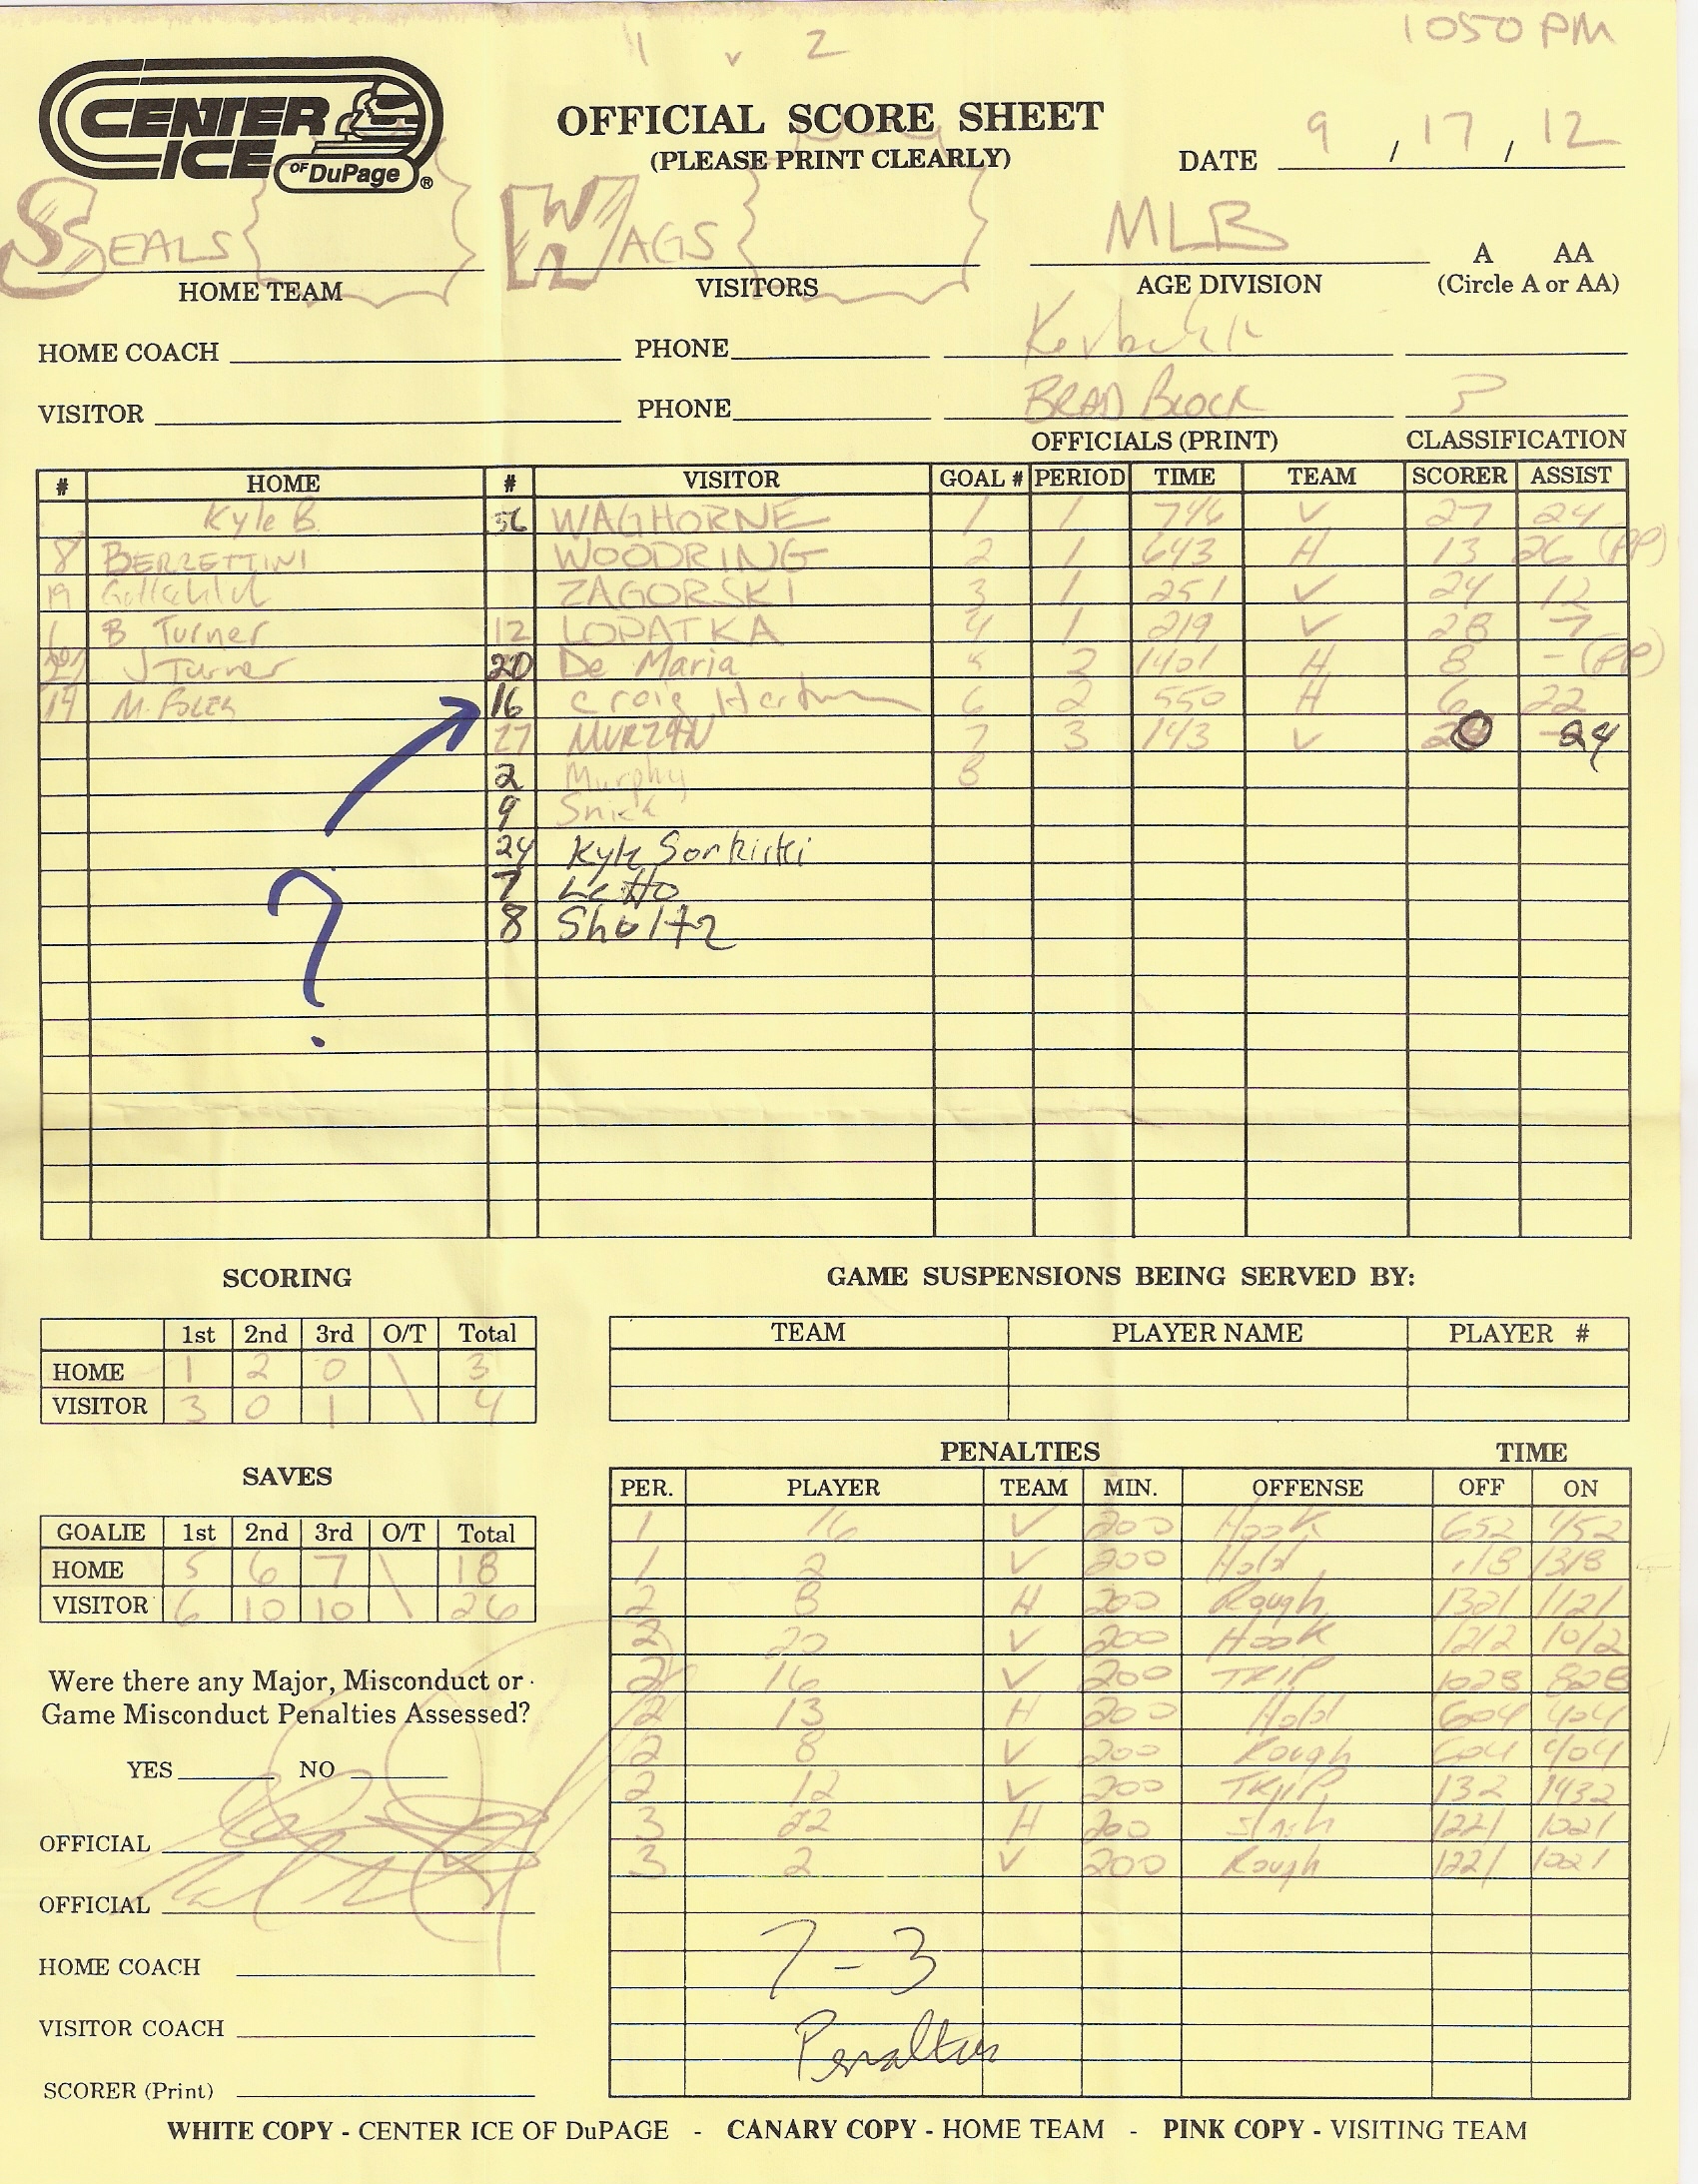 1 v 2
1050 PM
CENTER ICE OF DuPage ®
OFFICIAL SCORE SHEET
(PLEASE PRINT CLEARLY)
DATE 9 / 17 / 12
SEALS WAGS MLB A AA
HOME TEAM VISITORS AGE DIVISION (Circle A or AA)
HOME COACH PHONE
VISITOR PHONE BRAD BLOCK
OFFICIALS (PRINT) CLASSIFICATION
# HOME # VISITOR GOAL # PERIOD TIME TEAM SCORER ASSIST
Kyle B. 56 WAGHORNE 1 1 746 V 27 24
8 BERZETTINI WOODRING 2 1 643 H 13 26 (PP)
19 ZAGORSKI 3 1 251 V 24 12
B Turner 12 LOPATKA 4 1 219 V 28 7
J Turner 20 De Maria 5 2 1401 H 8 - (PP)
M. FOLEY 16 Craig 6 2 550 H 6 22
27 MURZYN 7 3 143 V 24
2 Murphy 8
9
24 Kyle
7 Letto
8 Sholtz
?
SCORING
1st 2nd 3rd O/T Total
HOME 1 2 0 \ 3
VISITOR 3 0 1 \ 4
GAME SUSPENSIONS BEING SERVED BY:
TEAM PLAYER NAME PLAYER #
SAVES
GOALIE 1st 2nd 3rd O/T Total
HOME 5 6 7 \ 18
VISITOR 6 10 10 \ 26
PENALTIES TIME
PER. PLAYER TEAM MIN. OFFENSE OFF ON
1 16 V 200 Hook 652 452
1 2 V 200 Hold :18 1318
2 8 H 200 Rough 1321 1121
2 20 V 200 Hook 1212 1012
2 16 V 200 TRIP 1028 828
2 13 H 200 Hold 604 404
2 8 V 200 Rough 604 404
2 12 V 200 TRIP 132 1432
3 22 H 200 Slash 1221 1021
3 2 V 200 Rough 1221 1021
7 - 3
Penalties
Were there any Major, Misconduct or
Game Misconduct Penalties Assessed?
YES NO
OFFICIAL
OFFICIAL
HOME COACH
VISITOR COACH
SCORER (Print)
WHITE COPY - CENTER ICE OF DuPAGE - CANARY COPY - HOME TEAM - PINK COPY - VISITING TEAM